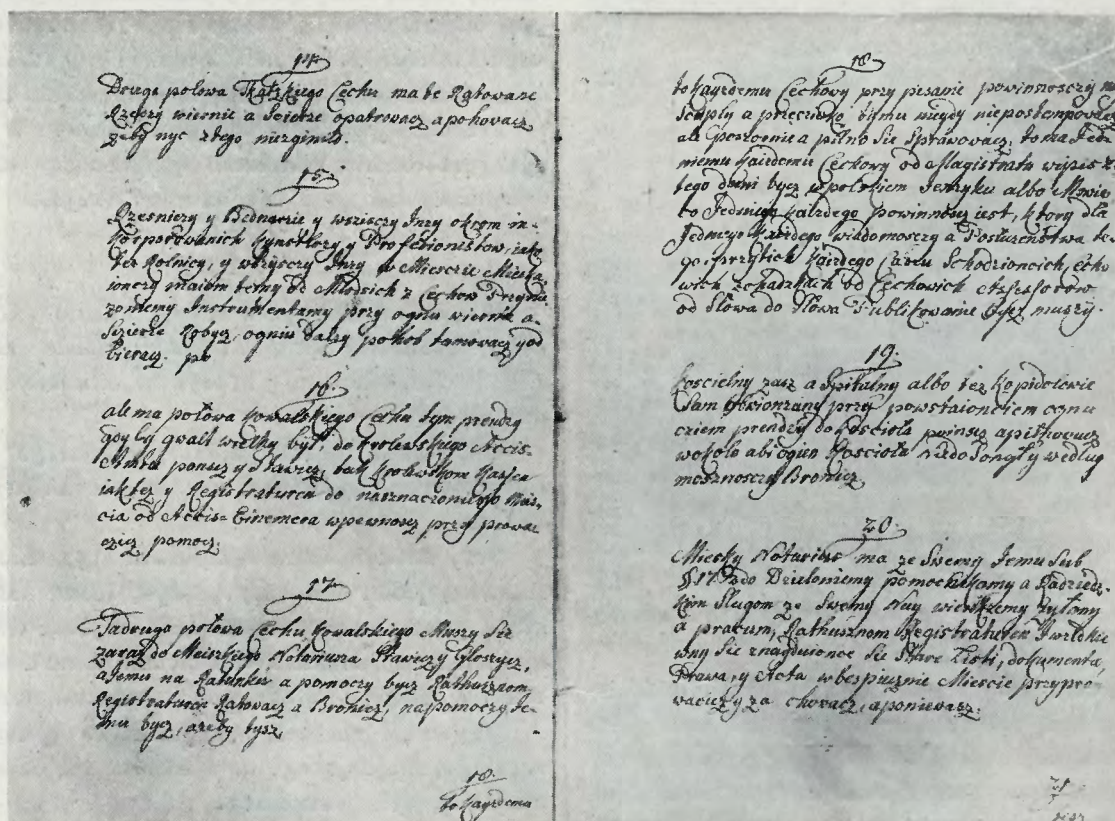 14.
Druga połowa Tkatzkiego Cechu ma te Ratowane
Rzeczy wiernie a Scierze opatrowacz a pohowacz
zeby nyc złego niezginuło.
15.
Rzesniczy y Bednarze y wsziscy Inzy okrom in-
korporowanich Kunstlerzy y Professionistow, iak
tez Rolnicy, y wszysczy Inzy w Miesczie Mieszka
ionczy maiom temy od Młodsich z Cechow Przynie
zionemy Instrumentamy przy ogniu wiernie a
Sczierze Robycz, ogniu dalszy pokob tamowacz y od
bieracz. po
16.
ale ma połowa Kowalskiego Cechu tym prendzy
gdy by gwalt wielky był, do Krolewskiego Accis-
Amtu ponsez y Stawicz, tak Krolewskom Kassen
iak tez y Registraturen do nasznaczonego Mias-
cia od Accis-Einemera w pewnosz przy prowa-
dzicz pomocz.
17.
Ta druga połowa Cechu Kowalskiego Muszy Sie
zaraz do Meiskiego Notariusza Stawiczy Gloszycz,
a Jemu na Ratunku a pomoczy bycz Rathusznom
Registraturen Ratowacz a Bronicz, na pomoczy te-
mu bycz, azeby tysz
18.
to Kayzdemu
18.
to Kayzdemu Cechowy przy pisanie powinnosczy
Sczisly a przeciwko temu niegdy nie postempowacz
ale Sposzbnie a pilno Sie Sprawowacz, to ma Jed-
niemu Kaizdemu Cechowy od Magistratu wypis z
tego dany bycz w polskiem Jenzyku albo Mowie
co Jedniego Kaizdego powinnosz iest, ktory dla
Jednego Kaizdego wiadomosczy a Posluzenstwa te-
go, przytich Kaizdego Czasu Schodzioncich, Echo
wich zchadzkach od Cechowich Assessorow
od Słowa do Słowa Publikowanie bycz muszy.
19.
Koscielny zasz a Spitalny albo tez Kopidołowie
Sam obwionzany przy powstaioncziem ogniu
cziem prendzy do Koscioła ponsez a pilnowacz
wokoło abi ogien Koscioła niedosongły według
mosznosczy Bronicz.
20.
Miesky Notariusz ma ze Swemy Jemu Sub
§17 do Dzieloniemy pomocnikamy a Radzieck-
kim Slugom ze Swemy Nay wienkszemy zylomy
a pracum, Rathusznom Registraturen Iwszelkie
wny Sie znayduionce Sie Stare Listi, dokumenta,
Prawa, y Acta w bespiecznie Miescie przypro-
waciczy za chowacz, a poniewasz
21